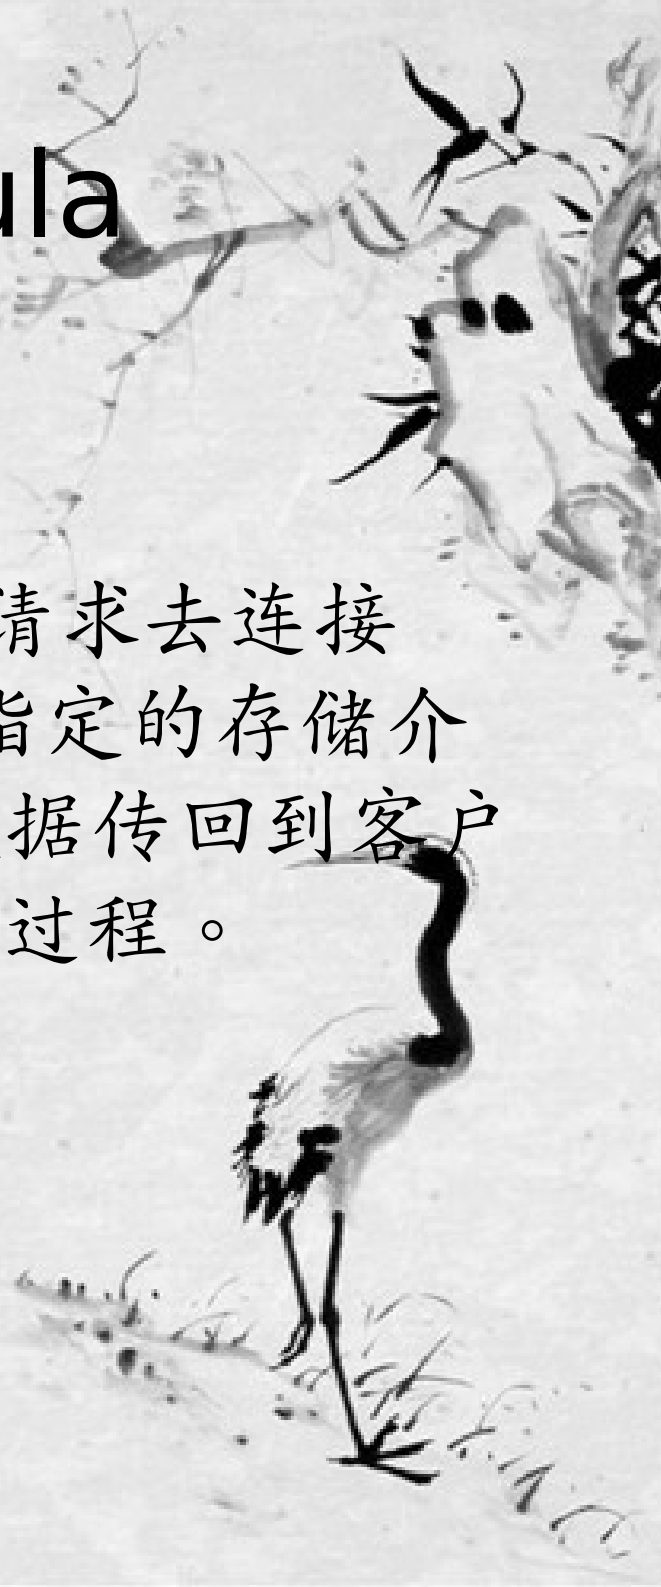 ula
请求去连接
指定的存储介
据传回到客户
过程。